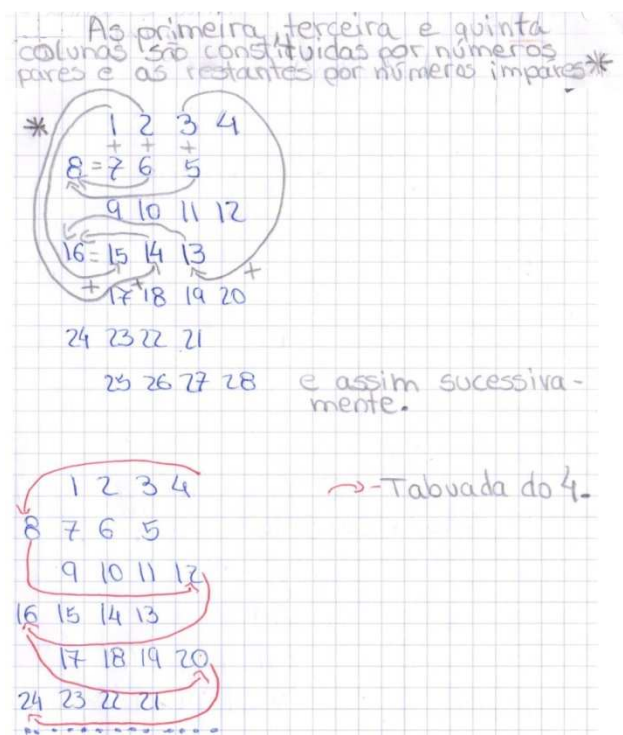 As primeira, terceira e quinta
colunas são constítuidas por números
pares e as restantes por números impares*
* 1 2 3 4
+ + +
8 = 7 6 5
9 10 11 12
16 = 15 14 13
+ + +
17 18 19 20
24 23 22 21
25 26 27 28 e assim sucessiva-
mente.
1 2 3 4 → - Tabuada do 4.
8 7 6 5
9 10 11 12
16 15 14 13
17 18 19 20
24 23 22 21